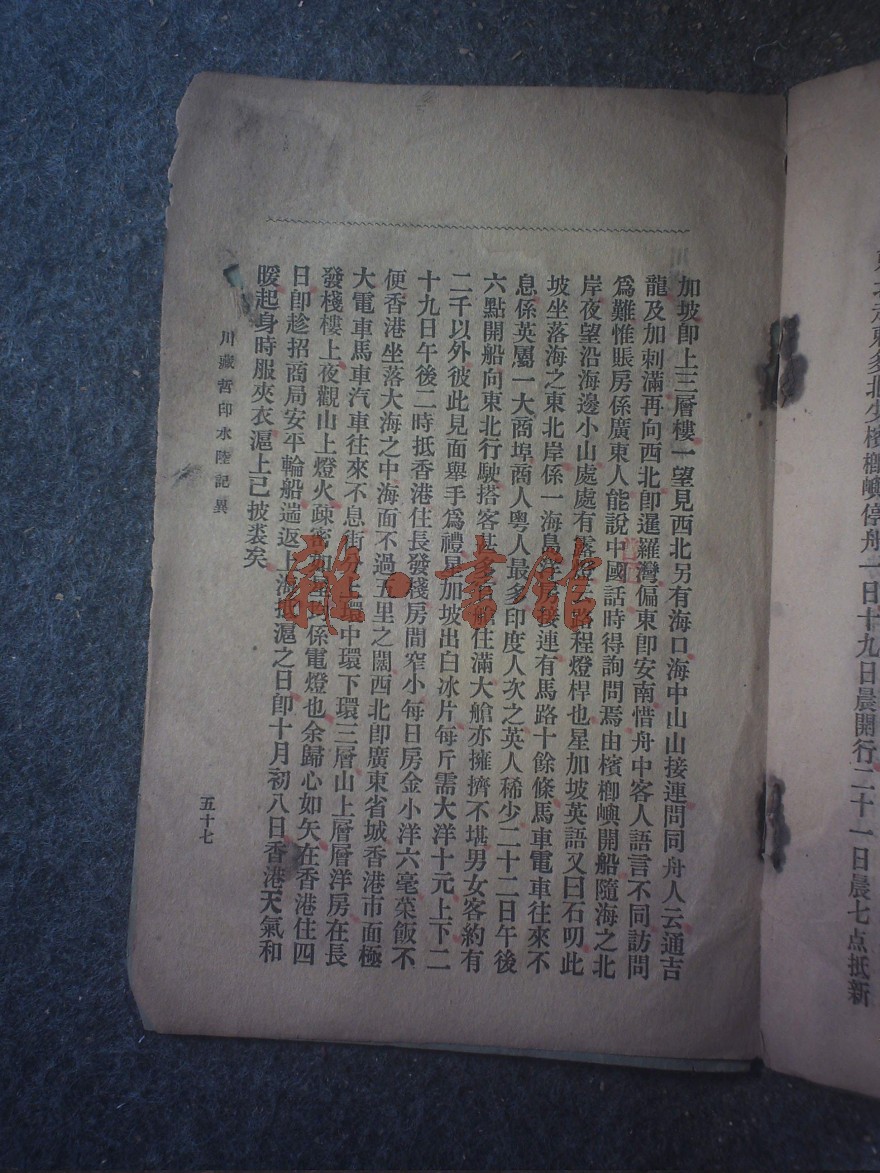 東北走東多北少檳榔嶼停舟一日十九日晨開行二十一日晨七点抵新
加坡卽上三層樓一望見西北另有海口海中山山接連問同舟人云通吉
龍及加刺滿再向西北卽暹羅灣偏東卽安南惜舟中客人語言不同訪問
爲難惟賬房係廣東人能說中國話時得詢問焉由檳榔嶼開船隨海之北
岸夜望沿海邊小山處處有露燈云路程燈桿也星加坡英語又曰石叻此
坡坐落海之東北岸係一海島洋房接連有馬路十餘條馬車電車往來不
息係英屬一大商埠商人粵人最多印度人次之英人稀少二十二日午後
六點開船向東北行駛搭客甚多官艙住滿大艙亦擁擠不堪男女客約有
二千以外彼此見面舉手爲禮星加坡出白冰片每斤需大洋十元上下二
十九日午後二時抵香港住長發棧房間窄小每日房金小洋六毫菜飯不
便香港坐落大海之中海面不過五里之闊西北卽廣東省城香港市面極
大電車馬車汽車往來不息街分上環中環下環三層山上層層洋房在長
發棧樓上夜觀山上燈火疎密如星均係電燈也余歸心如矢在香港住四
日卽趁招商局安平輪船遄返上海抵滬之日卽十月初八日香港天氣和
暖起身時服夾衣滬上已披裘矣
川藏哲印水陸記異
五十七
雜·書館